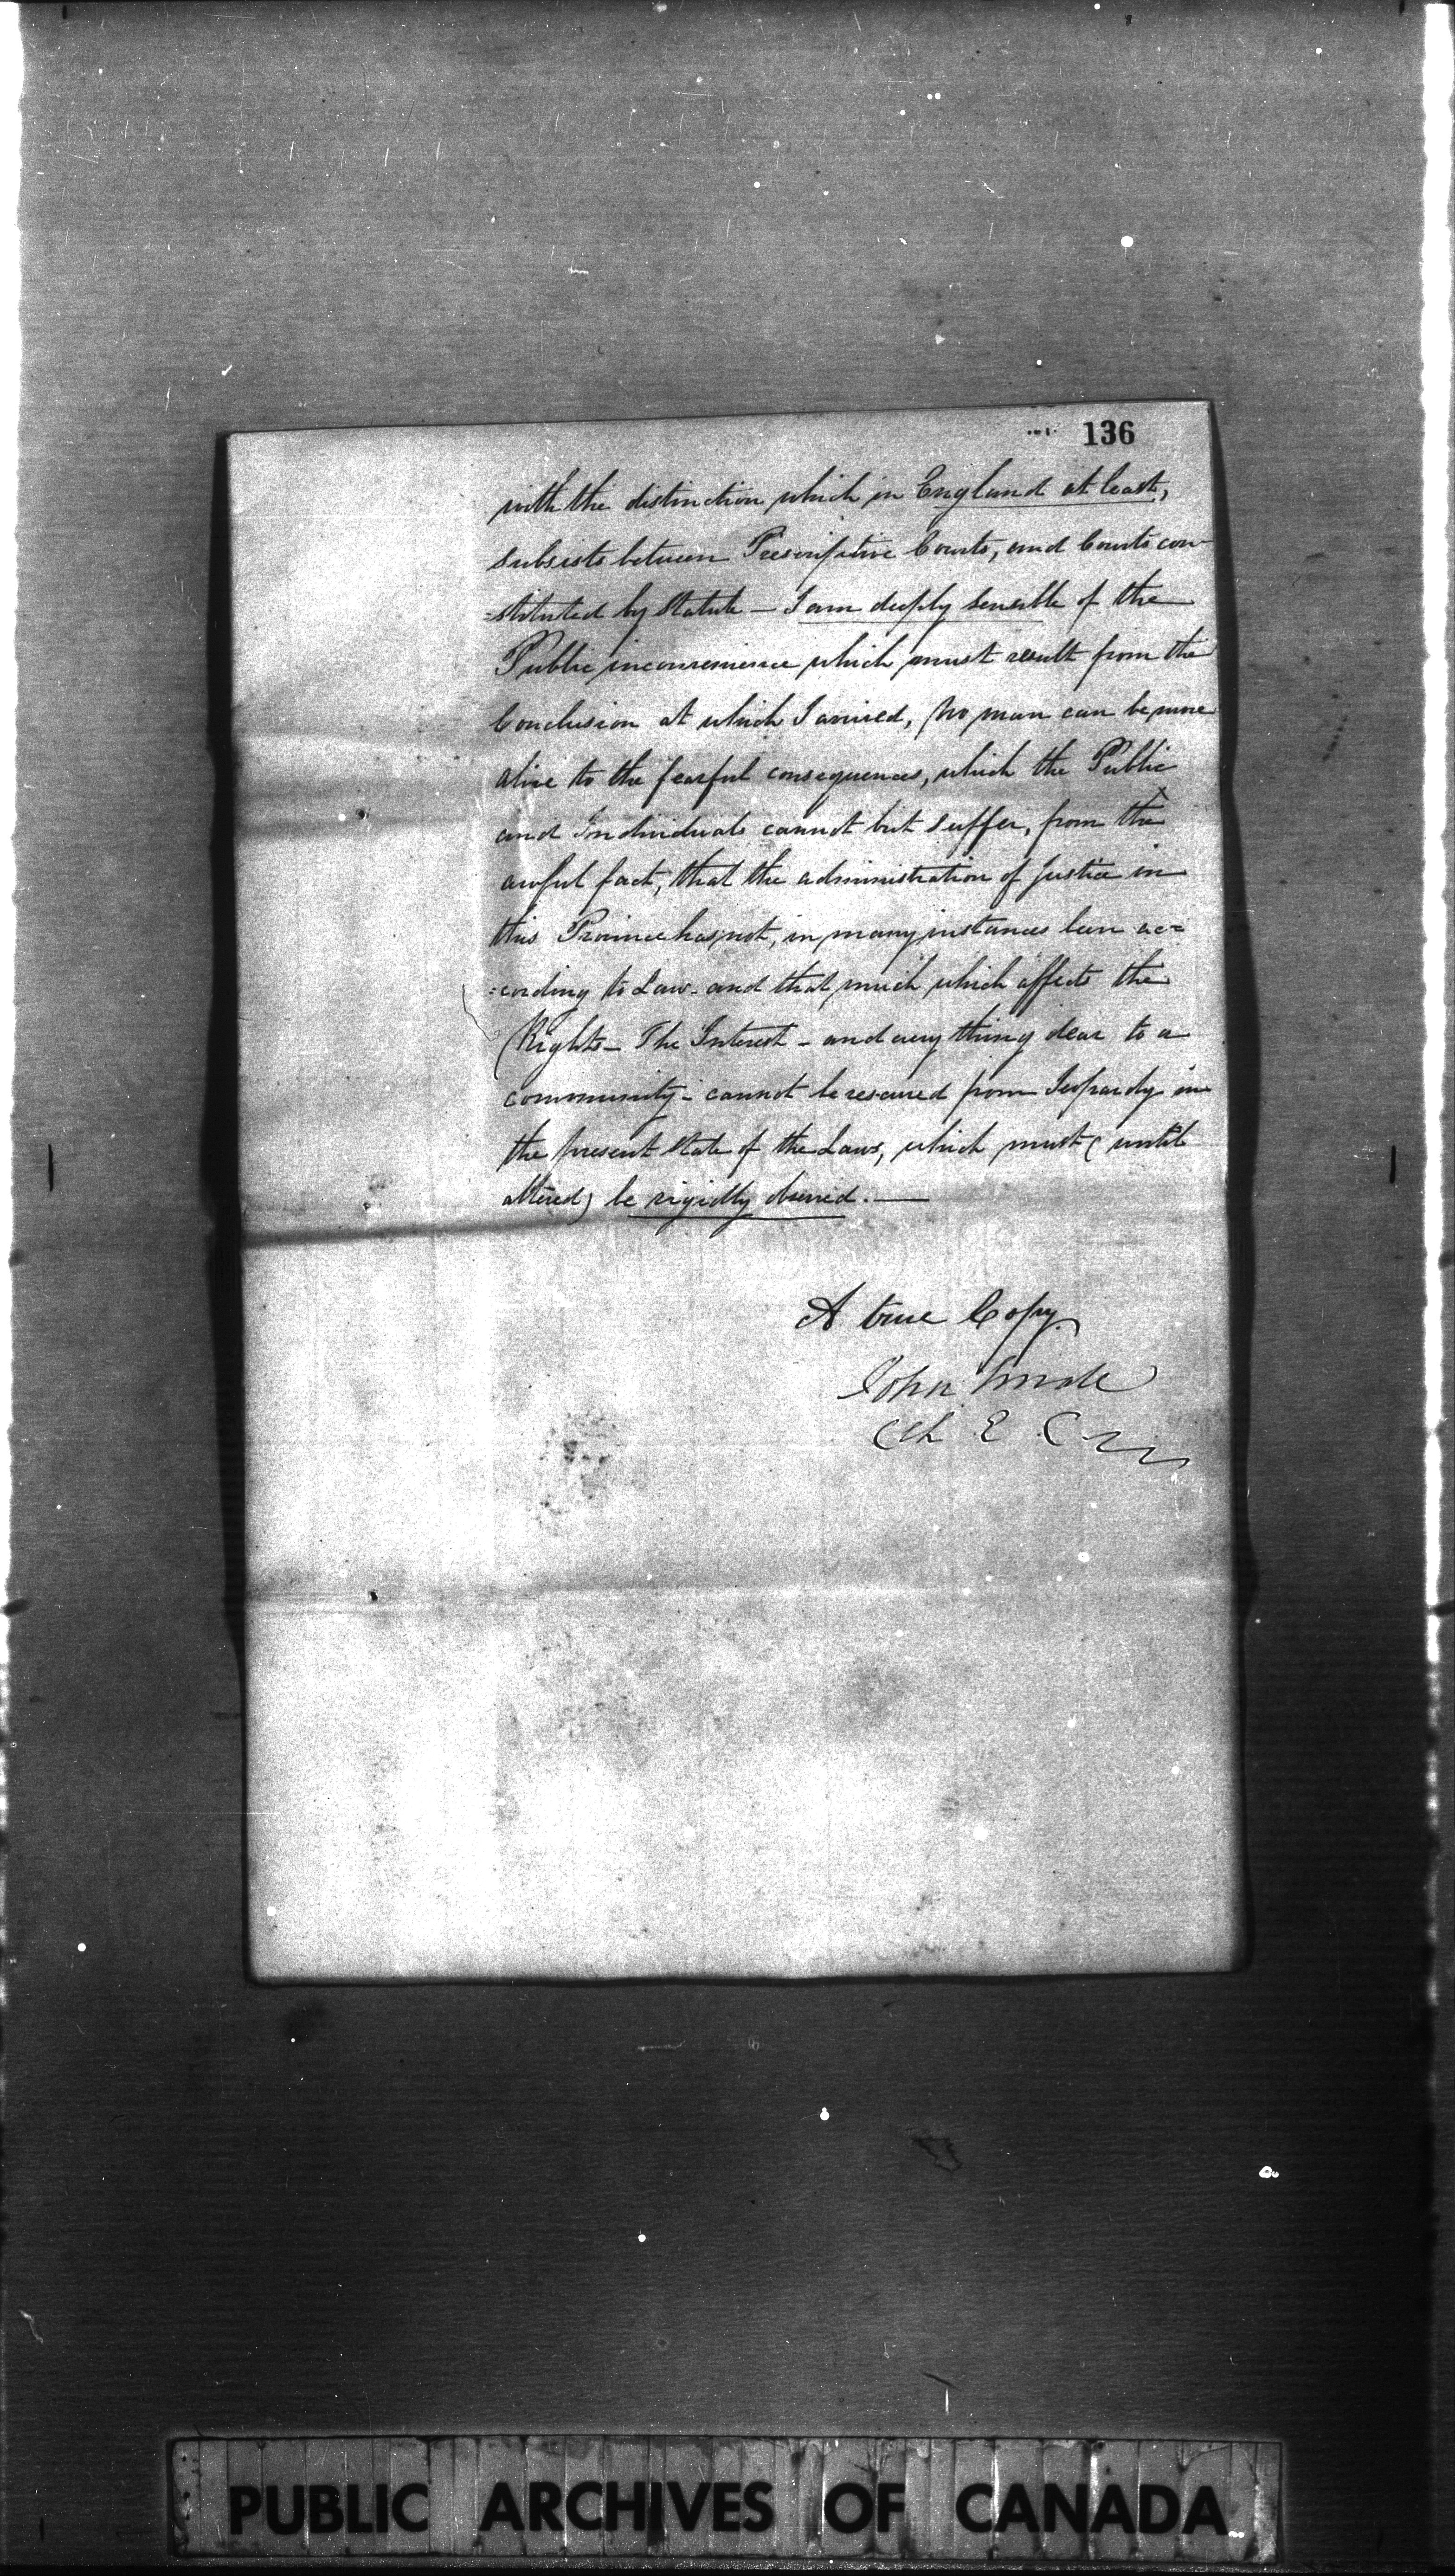 136
with the distinction which in England at least,
subsists between Prescriptive Courts, and Courts con-
=stituted by Statute — I am deeply sensible of the
Public inconvenience which must result from the
Conclusion at which I arrived, No man can be more
alive to the fearful consequences, which the Public
and Individuals cannot but suffer, from the
awful fact, that the administration of Justice in
this Province has not, in many instances been ac=
=cording to Law - and that much which affects the
Rights - The Interest - and every thing dear to a
community - cannot be rescued from Jeopardy in
the present State of the Laws, which must (until
altered) be rigidly observed. —
A true Copy.
John
PUBLIC ARCHIVES OF CANADA